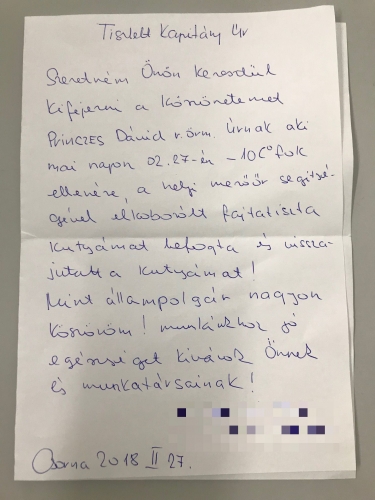 Tisztelt Kapitány Úr
Szeretném Önön keresztül
kifejezni a köszönetemet
Princzes Dávid r.örm. Úrnak aki
mai napon 02.27-én -10C° fok
ellenére, a helyi mezőőr segítsé-
gével elkóborolt fajtatiszta
kutyámat befogta és vissza-
jutatta kutyámat!
Mint állampolgár nagyon
köszönöm! munkához jó
egészséget kívánok Önnek
és munkatársainak!
Csorna 2018 II 27.